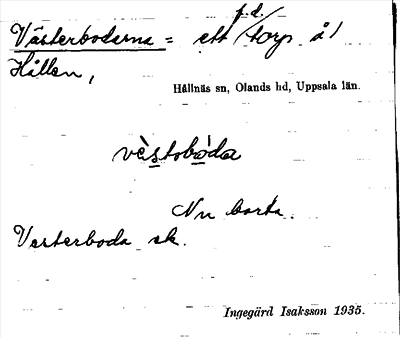 f.d.
Västerbodarna = ett / torp å
Hållen,
Hållnäs sn, Olands hd, Uppsala län.
vèstobóda
Nu borta.
Vesterboda sk.
Ingegärd Isaksson 1935.